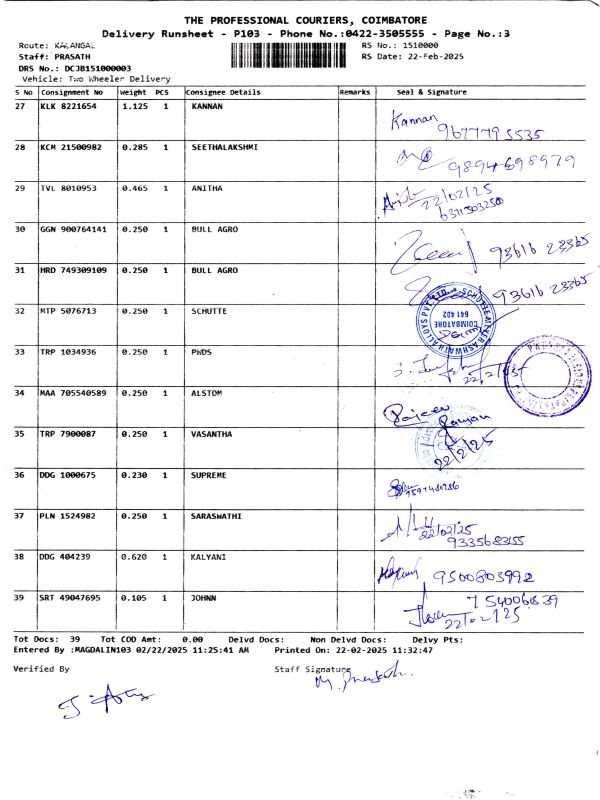 THE PROFESSIONAL COURIERS, COIMBATORE
Delivery Runsheet - P103 - Phone No.:0422-3505555 - Page No.:3
Route: KALANGAL RS No.: 1510000
Staff: PRASATH RS Date: 22-Feb-2025
DRS No.: DCJB151000003
Vehicle: Two Wheeler Delivery
S No Consignment No Weight PCS Consignee Details Remarks Seal & Signature
27 KLK 8221654 1.125 1 KANNAN Kannan
9677795535
28 KCM 21500982 0.285 1 SEETHALAKSHMI
9894698979
29 TVL 8010953 0.465 1 ANITHA 22/02/25
6311503250
30 GGN 900764141 0.250 1 BULL AGRO 93616 23365
31 HRD 749309109 0.250 1 BULL AGRO 93616 23365
32 MTP 5076713 0.250 1 SCHUTTE
COIMBATORE
641 402
33 TRP 1034936 0.250 1 PWDS
34 MAA 705540589 0.250 1 ALSTOM Rajeev
Ranjan
35 TRP 7900087 0.250 1 VASANTHA 22/2/25
36 DDG 1000675 0.230 1 SUPREME
37 PLN 1524982 0.250 1 SARASWATHI 22/02/25
9335683155
38 DDG 404239 0.620 1 KALYANI 9500803992
39 SRT 49047695 0.105 1 JOHNN
Tot Docs: 39 Tot COD Amt: 0.00 Delvd Docs: Non Delvd Docs: Delvy Pts:
Entered By :MAGDALIN103 02/22/2025 11:25:41 AM Printed On: 22-02-2025 11:32:47
Verified By Staff Signature
M. Prasath